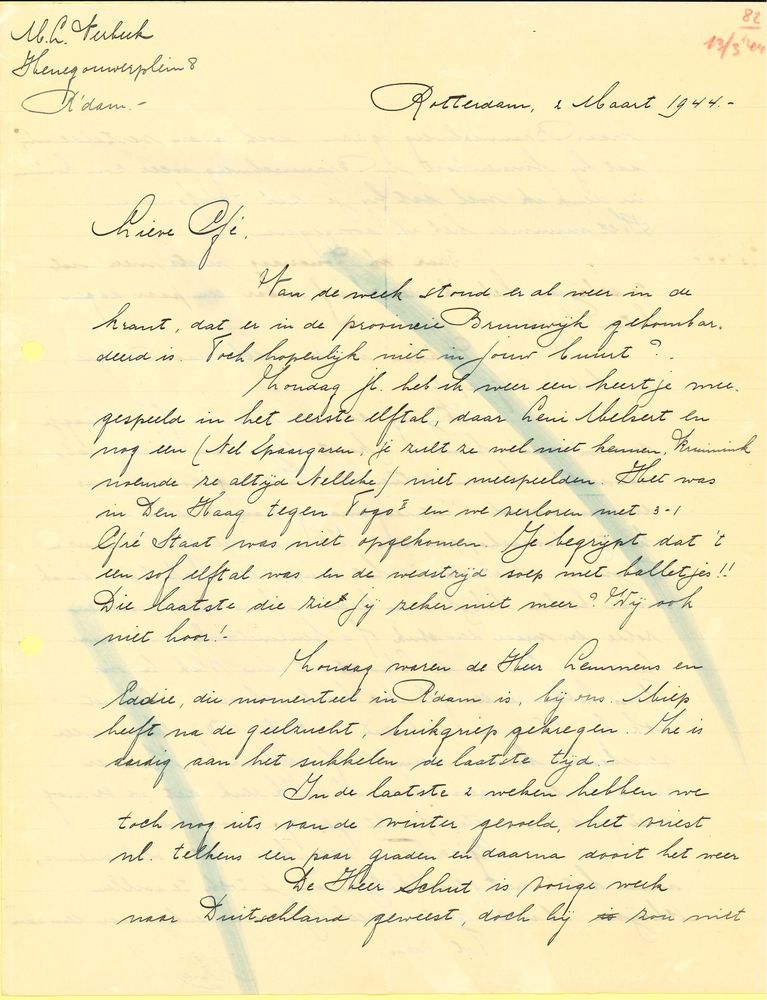 M.L. Verbeek
Henegouwerplein 8
R'dam.-
82
13/3 '44
Rotterdam, 2 Maart 1944.-
Lieve Cfé.
Van de week stond er al weer in de
krant, dat er in de provincie Brunswijk gebombar-
deerd is. Toch hopenlijk niet in jouw buurt?.
Zondag jl. heb ik weer een keertje mee-
gespeeld in het eerste elftal, daar Leni Melsert en
nog een (Nel Spaargaren, je zult ze wel niet kennen, Kruimink
noemde ze altijd Nelleke) niet meespeelden. Het was
in Den Haag tegen Togo II en we verloren met 3-1
Cfré Staat was niet opgekomen. Je begrijpt dat 't
een sof elftal was en de wedstrijd soep met balletjes!!
Die laatste die ziet jij zeker niet meer? Wij ook
niet hoor!-
Zondag waren de Heer Lemmens en
Eddie, die momenteel in R'dam is, bij ons. Miep
heeft na de geelzucht, buikgriep gekregen. Ze is
aardig aan het sukkelen de laatste tijd.-
In de laatste 2 weken hebben we
toch nog iets van de winter gevoeld, het vriest
nl. telkens een paar graden en daarna dooit het weer
De Heer Schut is vorige week
naar Duitschland geweest, doch hij is zou niet